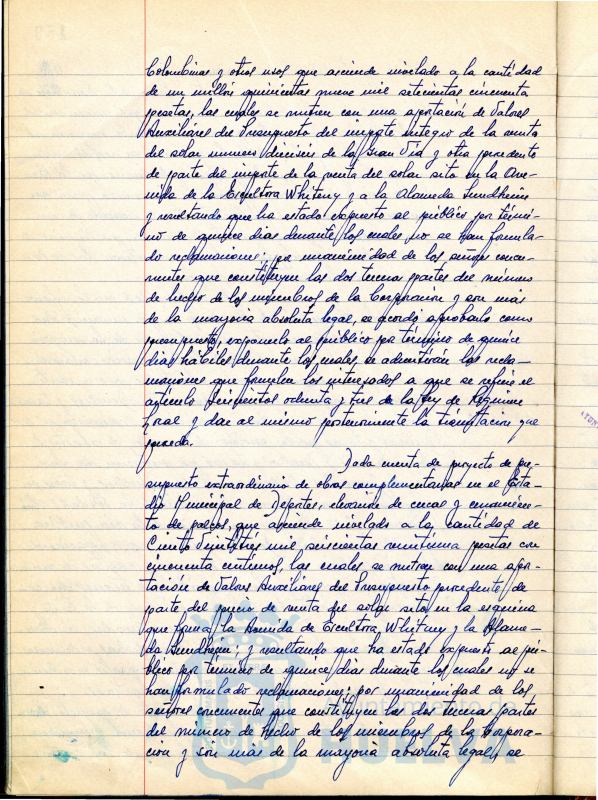 Colombinas y otros usos que asciende nivelado a la cantidad
de un millón quinientas nueve mil setecientas cincuenta
pesetas, las cuales se nutren con una aportación de Valores
Auxiliares del Presupuesto del importe integro de la venta
del solar numero dieciseis de la Gran Vía y otra procedente
de parte del importe de la venta del solar sito en la Ave-
nida de la Escultora Whitney y a la Alameda Sundheim
y resultando que ha estado expuesto al público por térmi-
no de quince dias durante los cuales no se han formula-
do reclamaciones; por unanimidad de los señores concu-
rrentes que constituyen las dos terceras partes del número
de hecho de los miembros de la Corporación y son más
de la mayoria absoluta legal, se acordó aprobarlo como
presupuesto, exponerlo al público por término de quince
dias hábiles durante los cuales se admitirán las recla-
maciones que formulen los interesados a que se refiere el
articulo seiscientos ochenta y tres de la Ley de Regimen
Local y dar al mismo posteriormente la tramitación que
proceda.
Dada cuenta de proyecto de pre-
supuesto extraordinario de obras complementarias en el Esta-
dio Municipal de Deportes, elevación de cercas y
to de palcos, que asciende nivelado a la cantidad de
Ciento Veintitrés mil seiscientas veintiuna pesetas con
cincuenta centimos, las cuales se nutren con una apor-
tación de Valores Auxiliares del Presupuesto procedente de
parte del precio de venta del solar sito en la esquina
que forma la Avenida de Escultora Whitney y la Alame-
da Sundheim; y resultando que ha estado expuesto al pú-
blico por término de quince dias durante los cuales no se
han formulado reclamaciones; por unanimidad de los
señores concurrentes que constituyen las dos terceras partes
del número de hecho de los miembros de la Corpora-
ción y son más de la mayoria absoluta legal, se